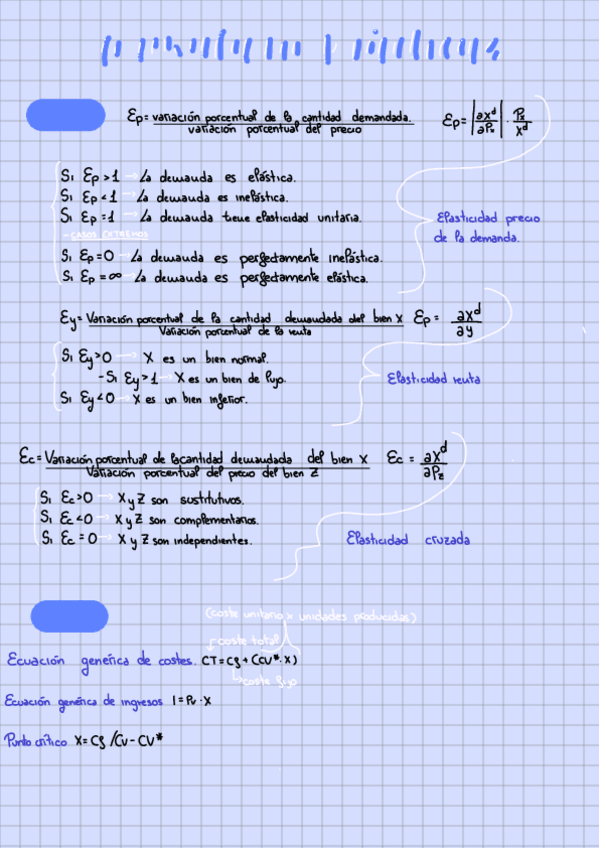 Ep = variación porcentual de la cantidad demandada. / variación porcentual del precio
Ep = |∂x^d / ∂Px| · Px / x^d
Si Ep > 1 → La demanda es elástica.
Si Ep < 1 → La demanda es inelástica.
Si Ep = 1 → La demanda tiene elasticidad unitaria.
- CASOS EXTREMOS
Si Ep = 0 → La demanda es perfectamente inelástica.
Si Ep = ∞ → La demanda es perfectamente elástica.
Elasticidad precio
de la demanda.
Ey = Variación porcentual de la cantidad demandada del bien X / Variación porcentual de la renta
Ep = ∂x^d / ∂y
Si Ey > 0 → X es un bien normal.
- Si Ey > 1 → X es un bien de lujo.
Si Ey < 0 → X es un bien inferior.
Elasticidad renta
Ec = Variación porcentual de la cantidad demandada del bien X / Variación porcentual del precio del bien Z
Ec = ∂x^d / ∂Pz
Si Ec > 0 → X y Z son sustitutivos.
Si Ec < 0 → X y Z son complementarios.
Si Ec = 0 → X y Z son independientes.
Elasticidad cruzada
(coste unitario x unidades producidas)
coste total
Ecuación genérica de costes. CT = Cf + (CU* · X)
coste fijo
Ecuación genérica de ingresos I = Pv · X
Punto crítico X = Cf / CU - CV*